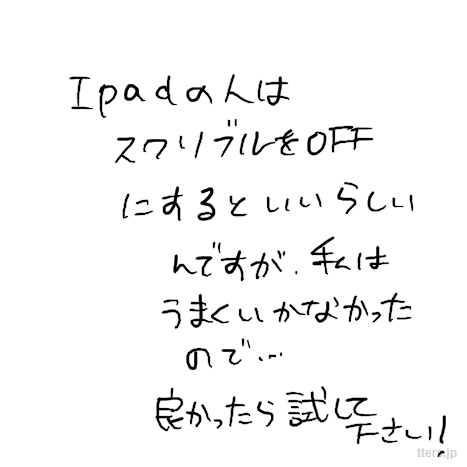 Ipadの人は
スクリブルをOFF
にするといいらしい
んですが、私は
うまくいかなかった
ので…
良かったら試して
下さい!
tter.jp